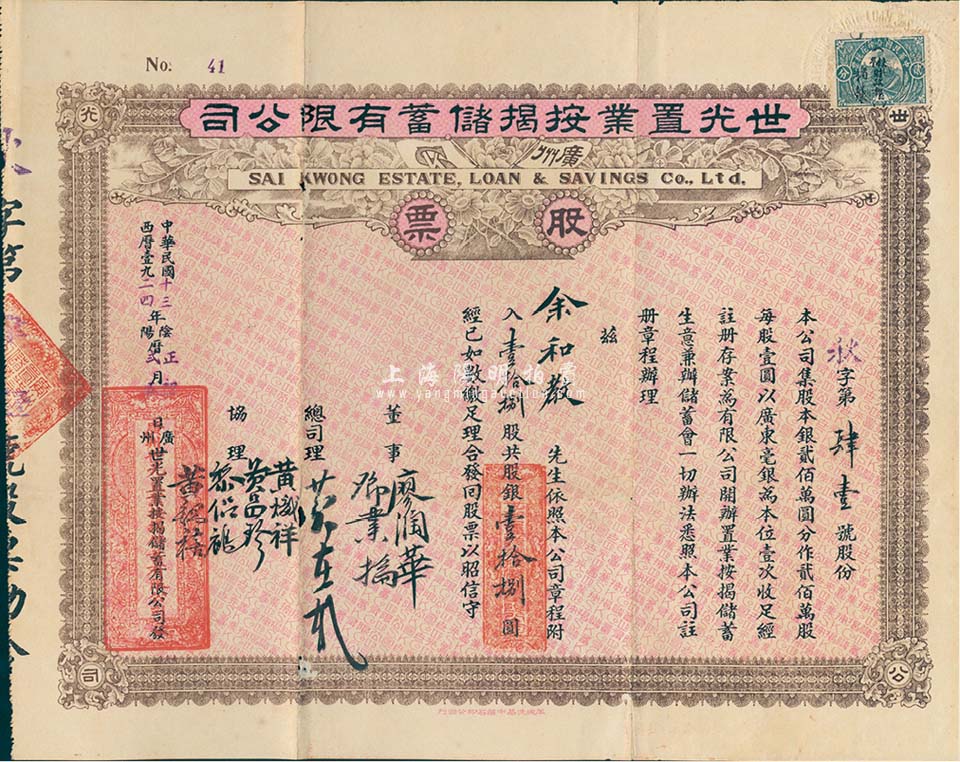 No. 41
世光置業按揭儲蓄有限公司
廣州
SAI KWONG ESTATE, LOAN & SAVINGS Co., Ltd.
股票
世
光
公
司
秋字第肆壹號股份
本公司集股本銀貳佰萬圓分作貳佰萬股
每股壹圓以廣東毫銀為本位壹次收足經
註册存案為有限公司開辦置業按揭儲蓄
生意兼辦儲蓄會一切辦法悉照本公司註
册章程辦理
茲
余和教先生依照本公司章程附
入壹拾捌股共股銀壹拾捌圓
經已如數繳足理合發回股票以昭信守
董事
廖潤華
總司理
協理
黃楫祥
中華民國十三年陰曆正月
西曆壹九二四年陽曆弍月
日廣州世光置業按揭儲蓄有限公司發
字第
上海陽明拍賣